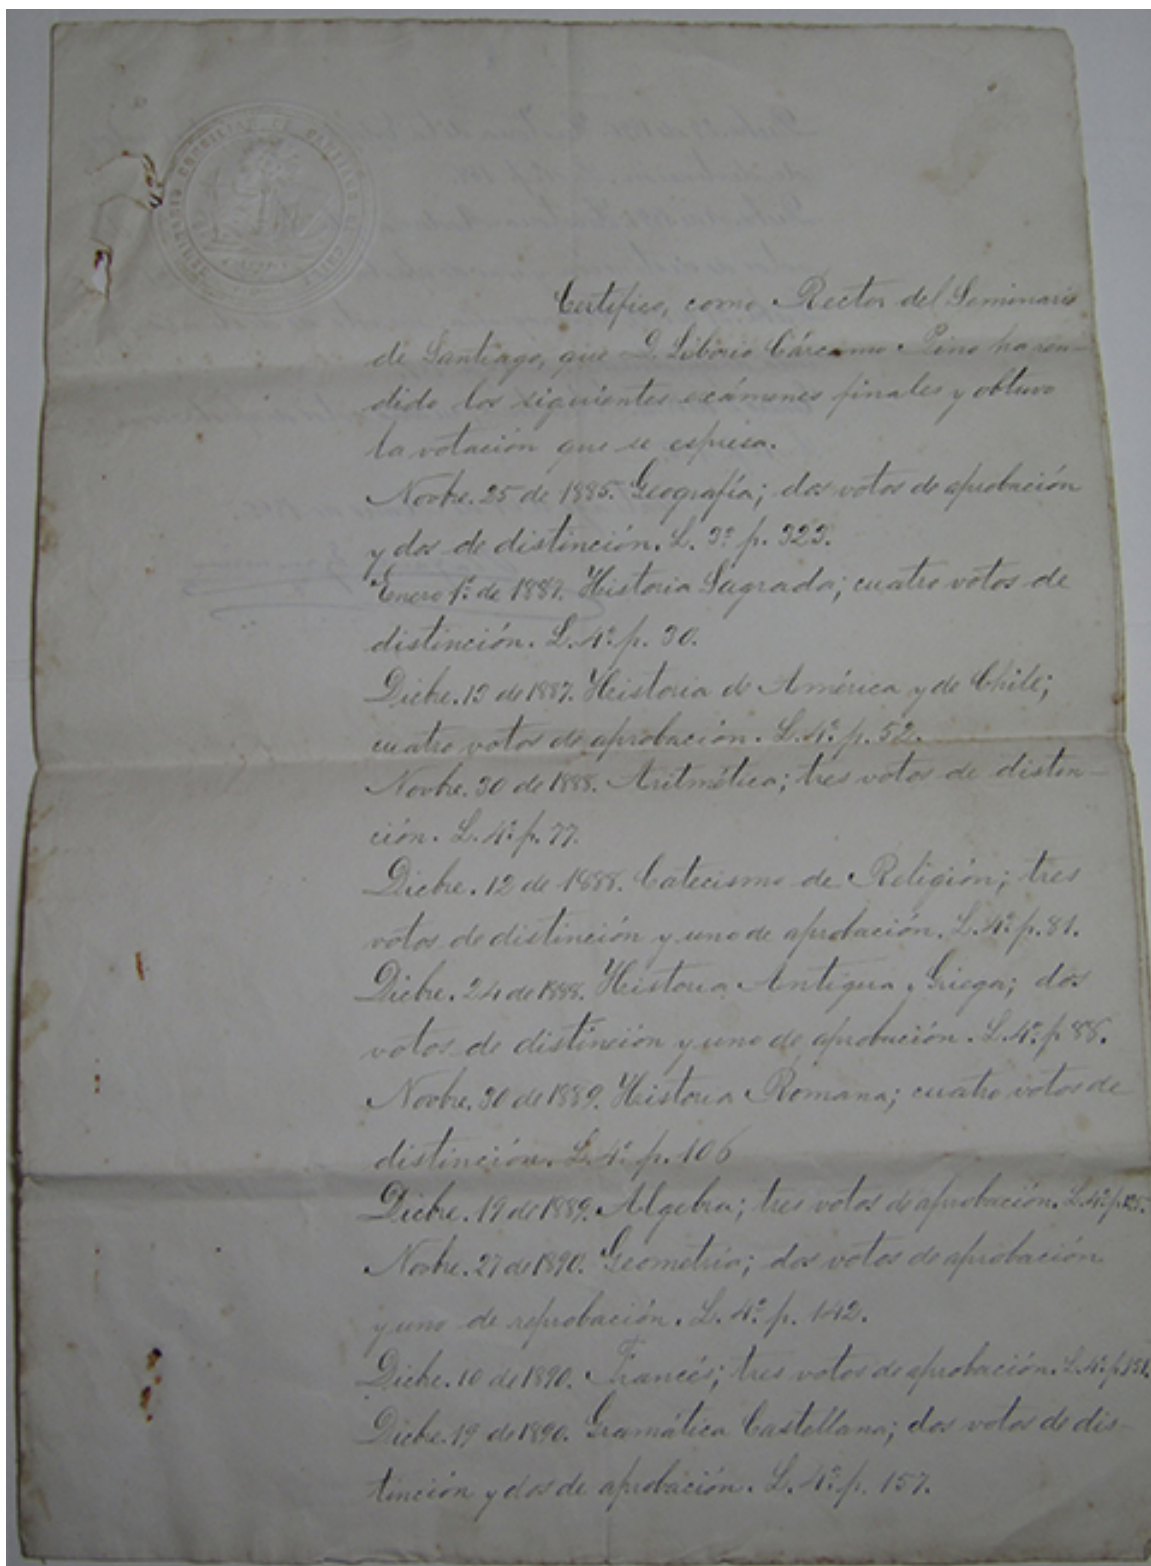 Certifico, como Rector del Seminario
de Santiago, que D. Liborio Cárcamo Pino ha ren-
dido los siguientes exámenes finales y obtuvo
la votación que se espresa.
Novbe. 25 de 1885. Geografía; dos votos de aprobación
y dos de distinción. L. 3º p. 323.
Enero 1º de 1887. Historia Sagrada; cuatro votos de
distinción. L. 4º p. 30.
Dicbe. 13 de 1887. Historia de América y de Chile;
cuatro votos de aprobación. L. 4º p. 52.
Novbe. 30 de 1888. Aritmética; tres votos de distin-
ción. L. 4º p. 77.
Dicbe. 12 de 1888. Catecismo de Religión; tres
votos de distinción y uno de aprobación. L. 4º p. 81.
Dicbe. 24 de 1888. Historia Antigua y Griega; dos
votos de distinción y uno de aprobación. L. 4º p. 88.
Novbe. 30 de 1889. Historia Romana; cuatro votos de
distinción. L. 4º p. 106
Dicbe. 19 de 1889. Algebra; tres votos de aprobación. L. 4º p. 125.
Novbe. 27 de 1890. Geometría; dos votos de aprobación
y uno de reprobación. L. 4º p. 142.
Dicbe. 10 de 1890. Francés; tres votos de aprobación. L. 4º p. 151.
Dicbe. 19 de 1890. Gramática Castellana; dos votos de dis-
tinción y dos de aprobación. L. 4º p. 157.